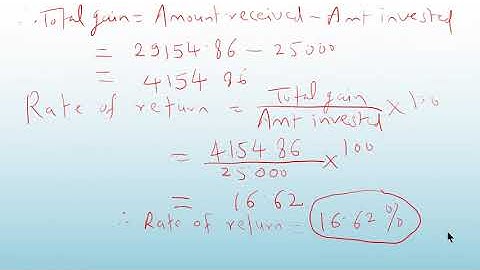 ∴ Total gain = Amount received - Amt invested
= 29154.86 - 25000
= 4154 86
Rate of return = Total gain / Amt invested × 100
= 4154 86 / 25000 × 100
= 16.62
∴ Rate of return = 16.62 %